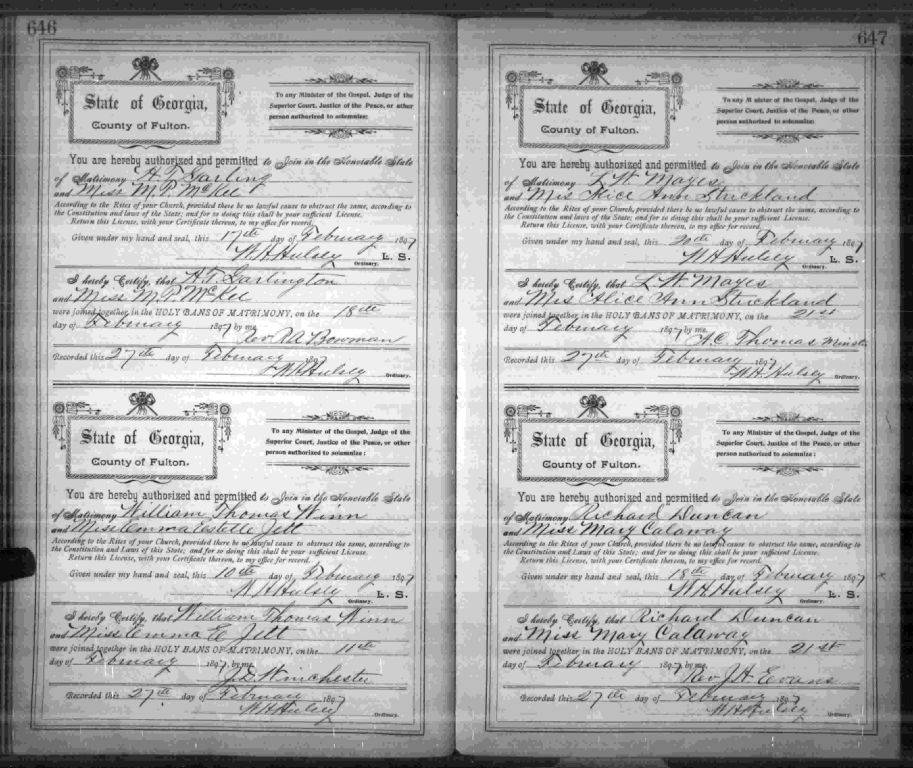 646
State of Georgia,
County of Fulton.
To any Minister of the Gospel, Judge of the
Superior Court, Justice of the Peace, or other
person authorized to solemnize:
You are hereby authorized and permitted to Join in the Honorable State
of Matrimony A. T. Darling
and Miss M. P. McKee
According to the Rites of your Church, provided there be no lawful cause to obstruct the same, according to the
Constitution and laws of the State; and for so doing this shall be your sufficient License.
Return this License, with your Certificate thereon, to my office for record.
Given under my hand and seal, this 17th day of February 1897
W. H. Hulsey L. S.
Ordinary.
I hereby Certify, that A. T. Darlington
and Miss M. P. McKee
were joined together, in the HOLY BANS OF MATRIMONY, on the 18th
day of February 1897 by me,
Rev. R. A. Bowman
Recorded this 27th day of February 1897
W. H. Hulsey Ordinary.
State of Georgia,
County of Fulton.
To any Minister of the Gospel, Judge of the
Superior Court, Justice of the Peace, or other
person authorized to solemnize:
You are hereby authorized and permitted to Join in the Honorable State
of Matrimony William Thomas Winn
and Miss Emma Estelle Jett
According to the Rites of your Church, provided there be no lawful cause to obstruct the same, according to the
Constitution and Laws of this State; and for so doing this shall be your sufficient License.
Return this License, with your Certificate thereon, to my office for record.
Given under my hand and seal, this 10th day of February 1897
W. H. Hulsey L. S.
Ordinary.
I hereby Certify, that William Thomas Winn
and Miss Emma E. Jett
were joined together in the HOLY BANS OF MATRIMONY, on the 11th
day of February 1897, by me,
J. D. Winchester
Recorded this 27th day of February 1897
W. H. Hulsey Ordinary.
647
State of Georgia,
County of Fulton.
To any Minister of the Gospel, Judge of the
Superior Court, Justice of the Peace, or other
person authorized to solemnize:
You are hereby authorized and permitted to Join in the Honorable State
of Matrimony L. W. Mayes
and Mis Alice Ann Strickland
According to the Rites of your Church, provided there be no lawful cause to obstruct the same, according to the
Constitution and laws of the State; and for so doing this shall be your sufficient License.
Return this License, with your Certificate thereon, to my office for record.
Given under my hand and seal, this 20th day of February 1897
W. H. Hulsey L. S.
Ordinary.
I hereby Certify, that L. W. Mayes
and Mis Alice Ann Strickland
were joined together, in the HOLY BANS OF MATRIMONY, on the 21st
day of February 1897 by me,
A. C. Thomas Minister
Recorded this 27th day of February 1897
W. H. Hulsey Ordinary.
State of Georgia,
County of Fulton.
To any Minister of the Gospel, Judge of the
Superior Court, Justice of the Peace, or other
person authorized to solemnize:
You are hereby authorized and permitted to Join in the Honorable State
of Matrimony Richard Duncan
and Miss Mary Calaway
According to the Rites of your Church, provided there be no lawful cause to obstruct the same, according to the
Constitution and Laws of this State; and for so doing this shall be your sufficient License.
Return this License, with your Certificate thereon, to my office for record.
Given under my hand and seal, this 18th day of February 1897
W. H. Hulsey L. S.
Ordinary.
I hereby Certify, that Richard Duncan
and Miss Mary Calaway
were joined together in the HOLY BANS OF MATRIMONY, on the 21st
day of February 1897 by me,
Rev. J. H. Evans
Recorded this 27th day of February 1897
W. H. Hulsey Ordinary.